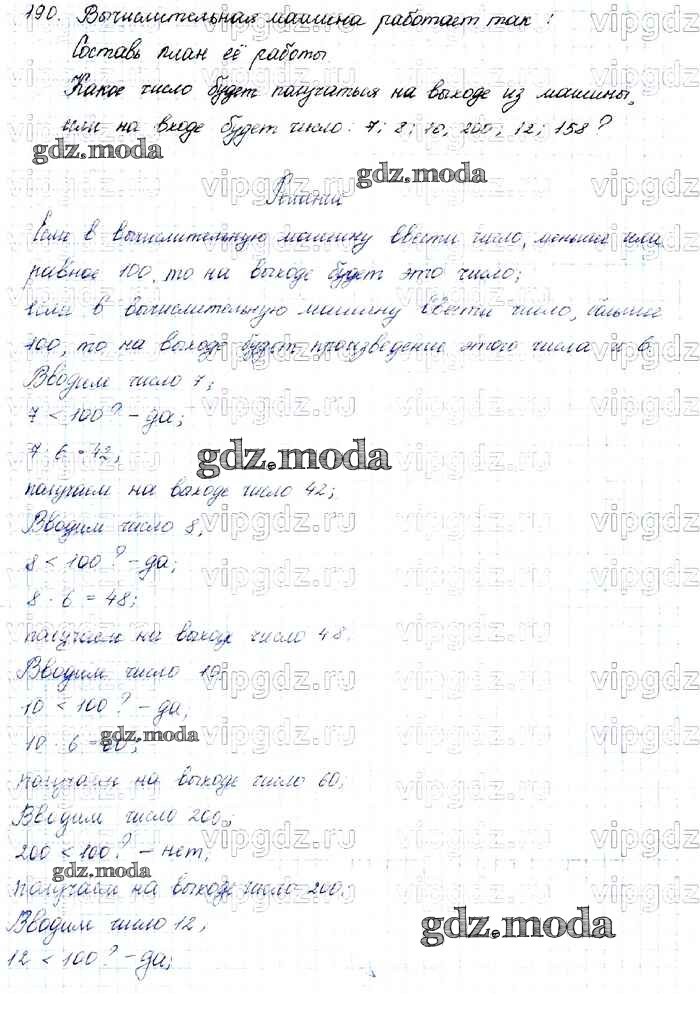 190. Вычислительная машина работает так:
Составь план её работы
Какое число будет получаться на выходе из машины,
если на входе будет число: 7; 8; 10, 200, 12; 158?
gdz.moda
gdz.moda
Решение
Если в вычислительную машину ввести число, меньшее или
равное 100, то на выходе будет это число;
если в вычислительную машину ввести число, больше
100, то на выходе будет произведение этого числа и 6.
Вводим число 7;
7 < 100? - да;
7 · 6 = 42,
gdz.moda
получаем на выходе число 42;
Вводим число 8,
8 < 100? - да;
8 · 6 = 48;
получаем на выходе число 48.
Вводим число 10
10 < 100? - да,
10 · 6 = 60;
gdz.moda
получаем на выходе число 60;
Вводим число 200,
200 < 100? - нет,
gdz.moda
получаем на выходе число 200.
Вводим число 12,
gdz.moda
12 < 100? - да;
vipgdz.ru